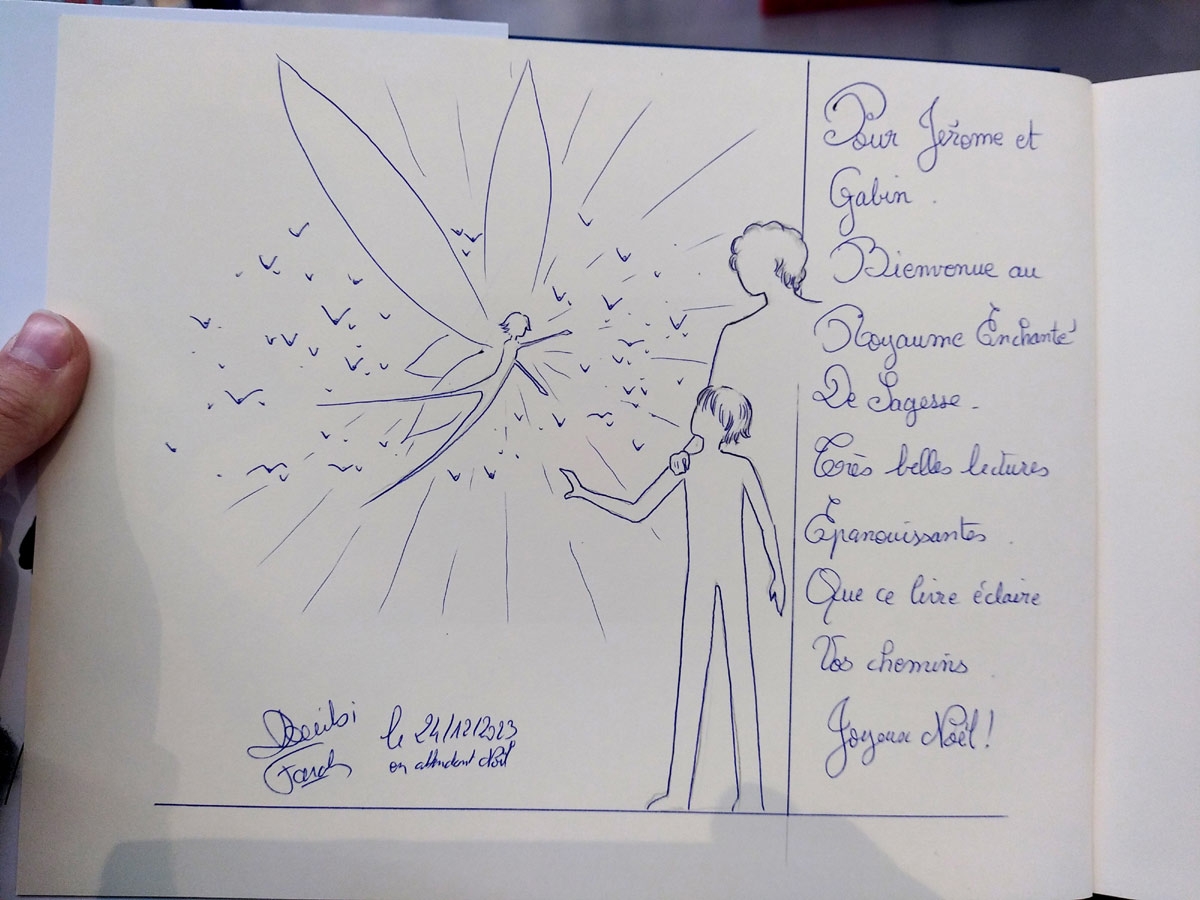 Pour Jérome et
Gabin.
Bienvenue au
Royaume Enchanté
De Sagesse.
Très belles lectures
Epanouissantes.
Que ce livre éclaire
Vos chemins
Joyeux Noël!
le 24/12/2023
en attendant Noël